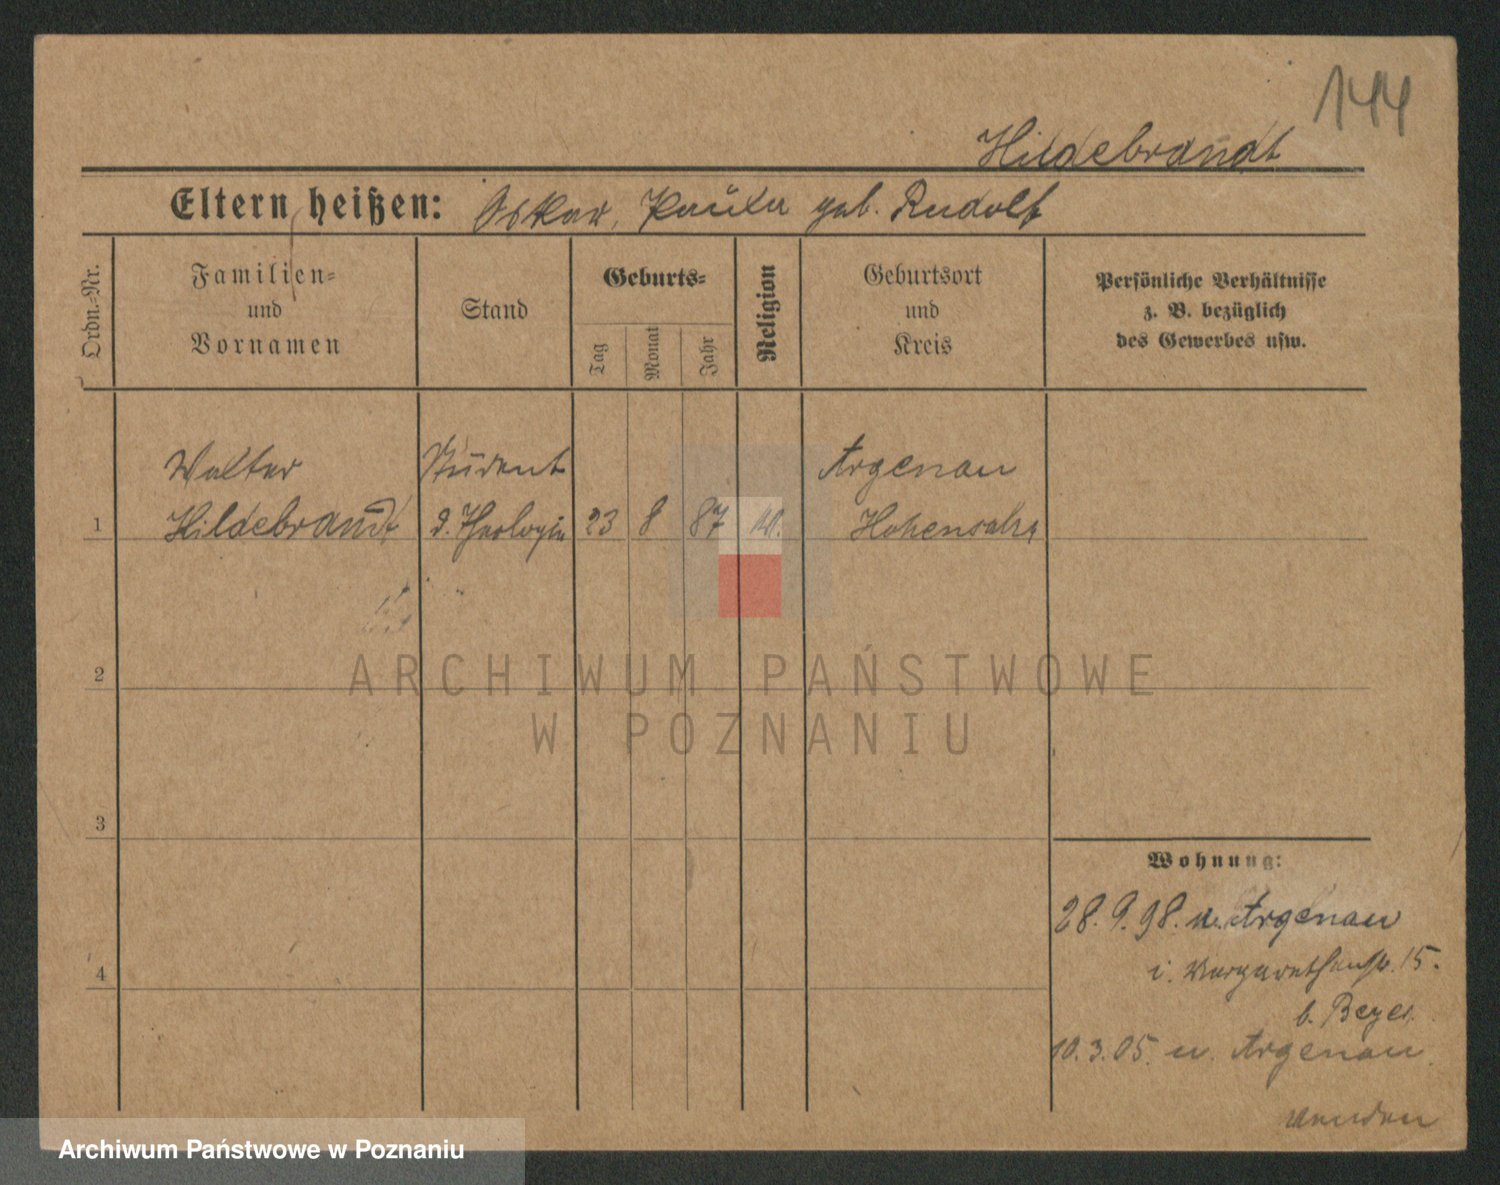 144
Hildebrandt
Eltern heißen: Oskar, Paula geb. Rudolf
Ordn.=Nr.
Familien=
und
Vornamen
Stand
Geburts=
Tag
Monat
Jahr
Religion
Geburtsort
und
Kreis
Persönliche Verhältnisse
z. B. bezüglich
des Gewerbes usw.
Walter Student Argenau
1 Hildebrandt d. Theologie 23 8 87 Hohensalza
2
3
4
ARCHIWUM PAŃSTWOWE
W POZNANIU
Wohnung:
28.9.98. v. Argenau
i. Margarethenstr. 15.
b. Beyer.
10.3.05. n. Argenau
wenden
Archiwum Państwowe w Poznaniu